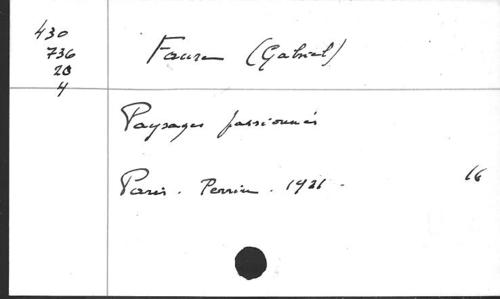 430
736
20
4
Faure (Gabriel)
Paysages passionnés
Paris. Perrin. 1921.
16